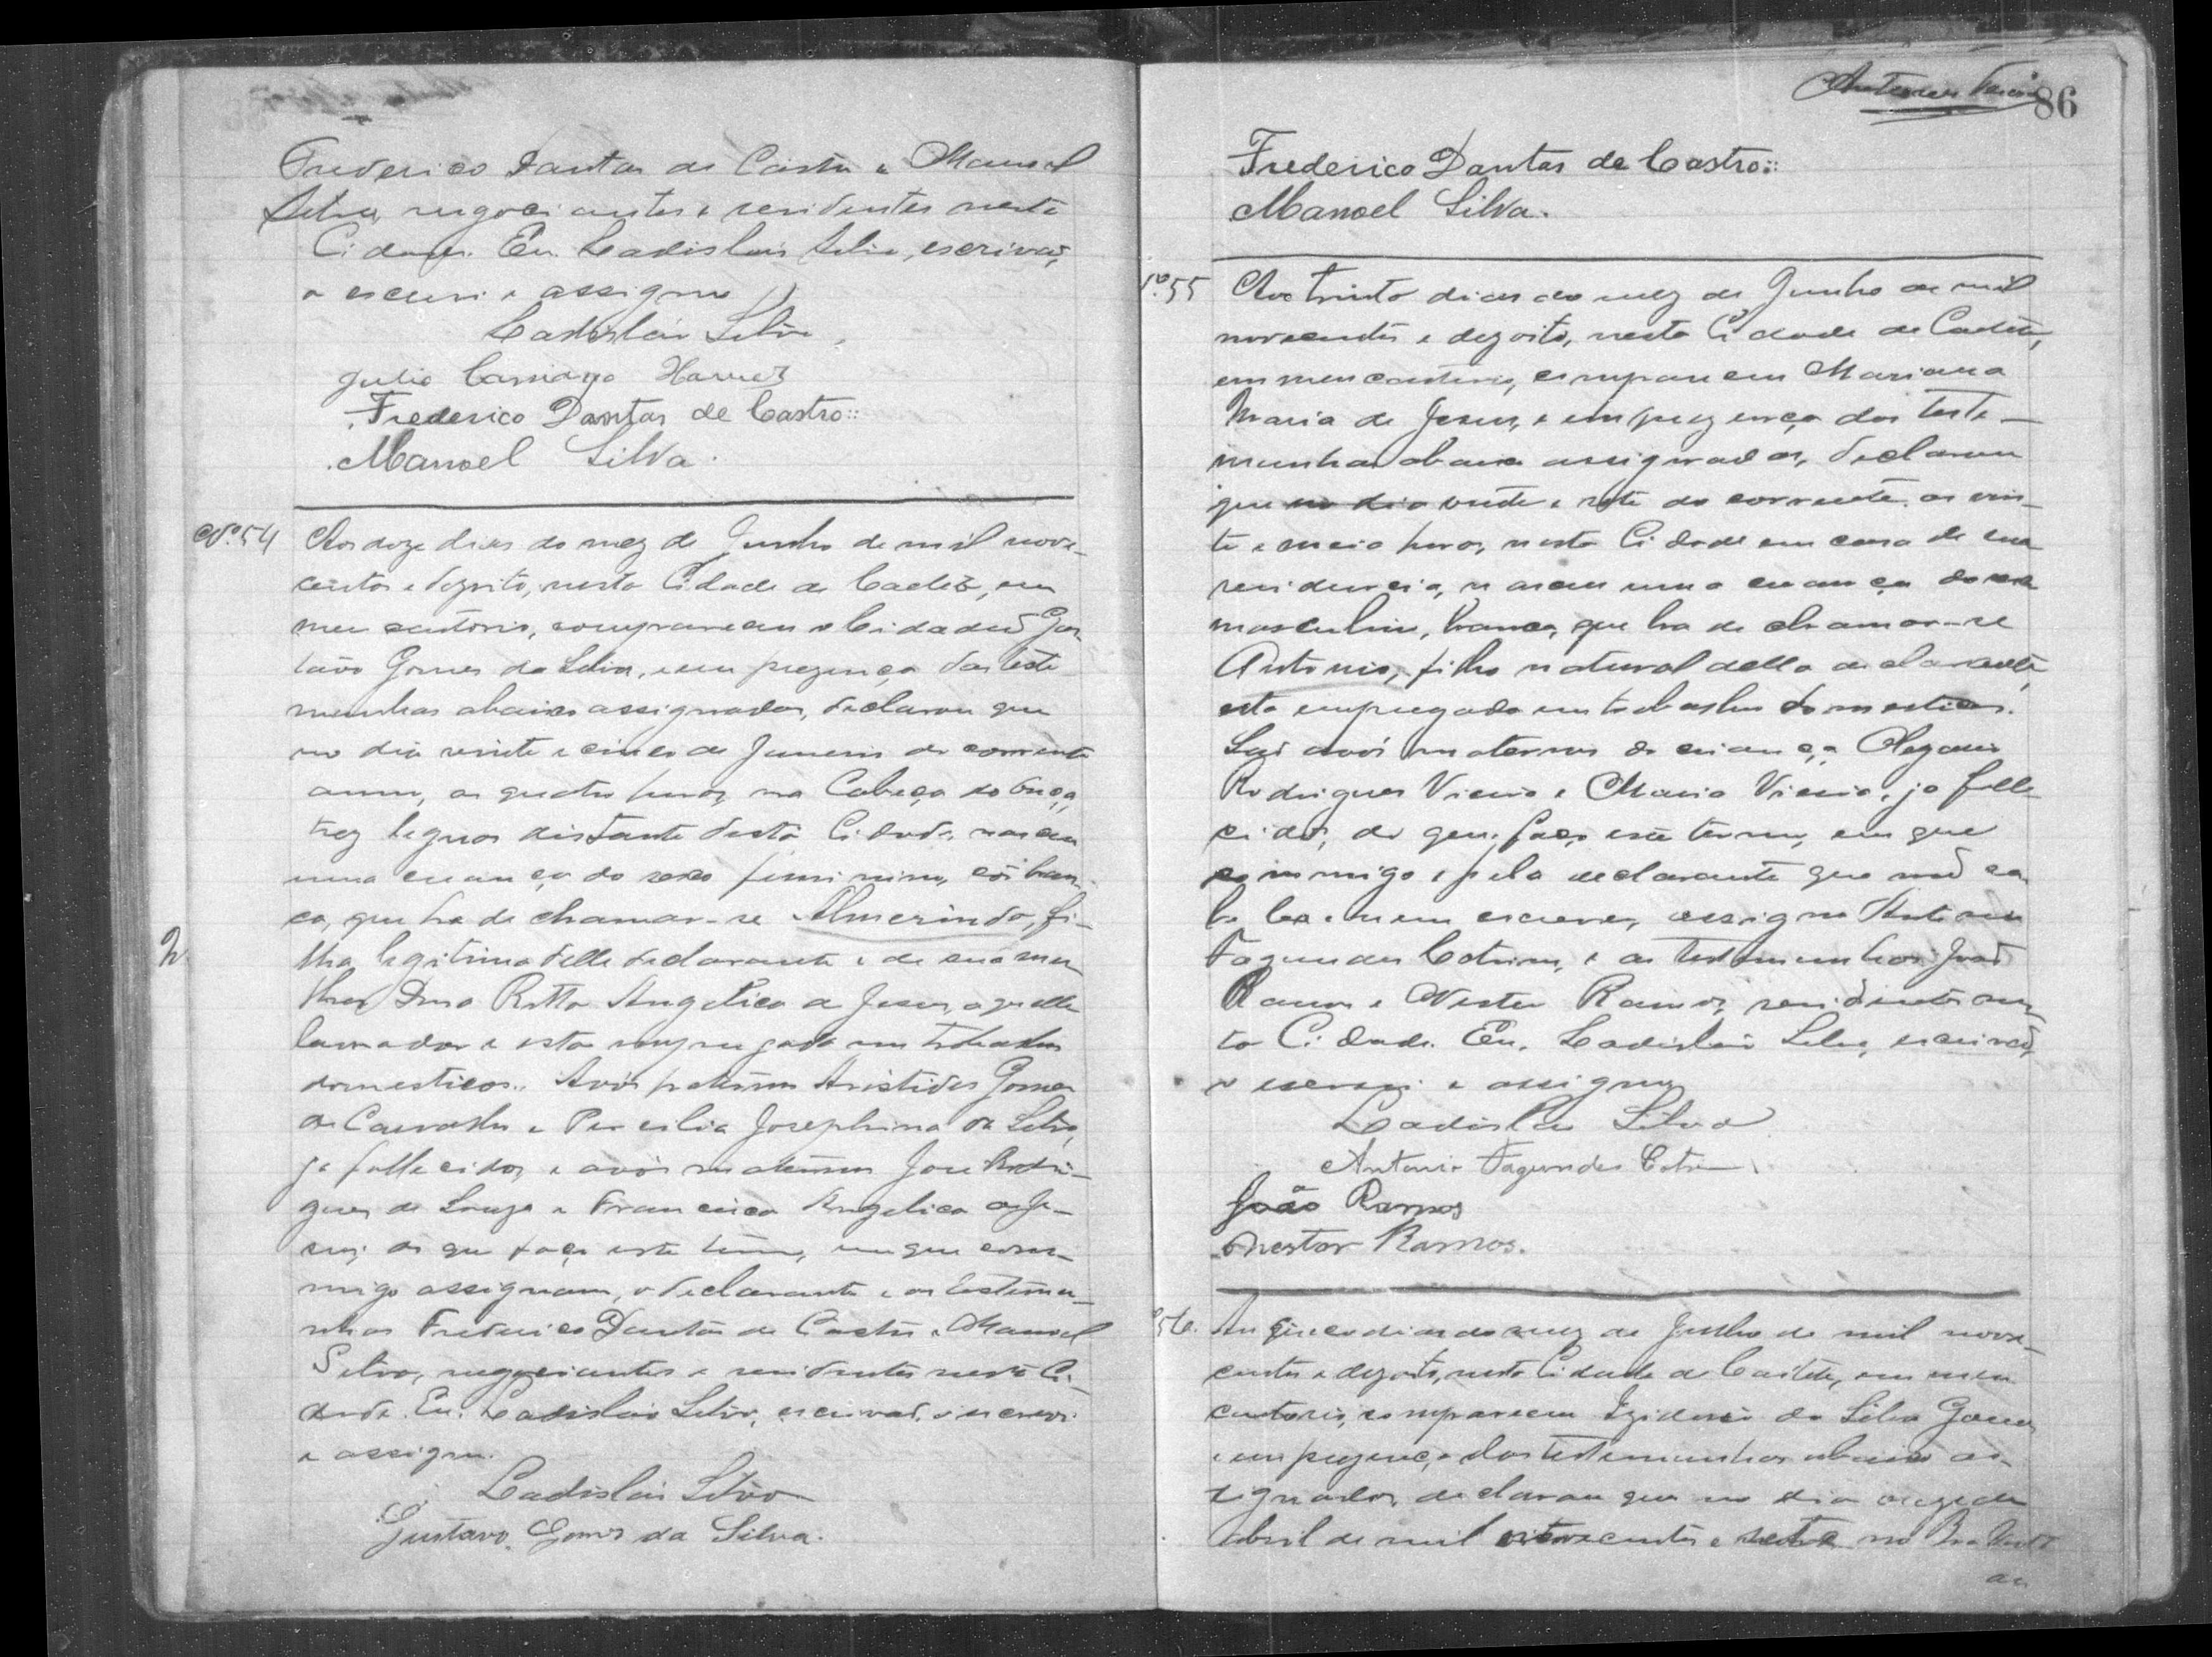 Frederico Dantas de Castro e Manoel
Silva, negociantes e residentes nesta
Cidade. Eu, Ladislau Silva, escrivão,
o escrevi e assigno
Ladislau Silva
Julio
Frederico Dantas de Castro::
Manoel Silva.
Nº 54 Aos doze dias do mez de Junho de mil nove-
centos e dezoito, nesta Cidade de Caeteté, em
meu cartorio, compareceu o Cidadão Gus-
tavo Gomes da Silva, e em prezença das teste-
munhas abaixo assignadas, declarou que
no dia vinte e cinco de Janeiro do corrente
anno, as quatro horas, na Cabeça da Onça,
trez leguas distante desta Cidade, nasceu
uma creança do sexo feminino, côr bran-
ca, que ha de chamar-se Almerinda, fi-
lha legitima delle declarante e de sua mu-
lher Dona Ritta Angelica de Jesus, aquelle
lavrador e esta empregada em trabalhos
domesticos. Avós paternos Aristides Gomes
de Carvalho e Percilia Josephina da Silva,
já fallecidos, e avós maternos José Rodri-
gues de Souza e Francisca Angelica de Je-
sus; do que faço este termo, em que com-
migo assignam, o declarante e as testemu-
nhas Frederico Dantas de Castro e Manoel
Silva, negociantes e residentes nesta Ci-
dade. Eu, Ladislau Silva, escrivão, o escrevi
e assigno.
Ladislau Silva
Gustavo Gomes da Silva.
86
Frederico Dantas de Castro::
Manoel Silva.
Nº 55 Aos trinta dias do mez de Junho de mil
novecentos e dezoito, nesta Cidade de Caeteté,
em meu cartorio, compareceu Mariana
Maria de Jesus, e em prezença das teste-
munhas abaixo assignadas, declarou
que no dia vinte e sete do corrente, as vin-
te e meia horas, nesta Cidade em casa de sua
residencia, nasceu uma creança do sexo
masculino, branca, que ha de chamar-se
Antonio, filho natural della declarante,
esta empregada em trabalhos domesticos.
São avós maternos da criança Olegario
Rodrigues Vieira e Maria Vieira, já falle-
cidos; do que, faço este termo, em que
commigo e pela declarante que não sa-
be ler e nem escrever, assigna Antonio
Fagundes Cotrim, e as testemunhas João
Ramos e Nestor Ramos, residentes nes-
ta Cidade. Eu, Ladislau Silva, escrivão,
o escrevi e assigno
Ladislau Silva
Antonio Fagundes Cotrim
João Ramos
Nestor Ramos.
56. Aos cinco dias do mez de Julho de mil nove-
centos e dezoito, nesta Cidade de Caeteté, em meu
cartorio, compareceu Izidorio da Silva Gomes
e em prezença das testemunhas abaixo as-
signadas, declarou que no dia onze de
Abril de mil oitocentos e setenta no